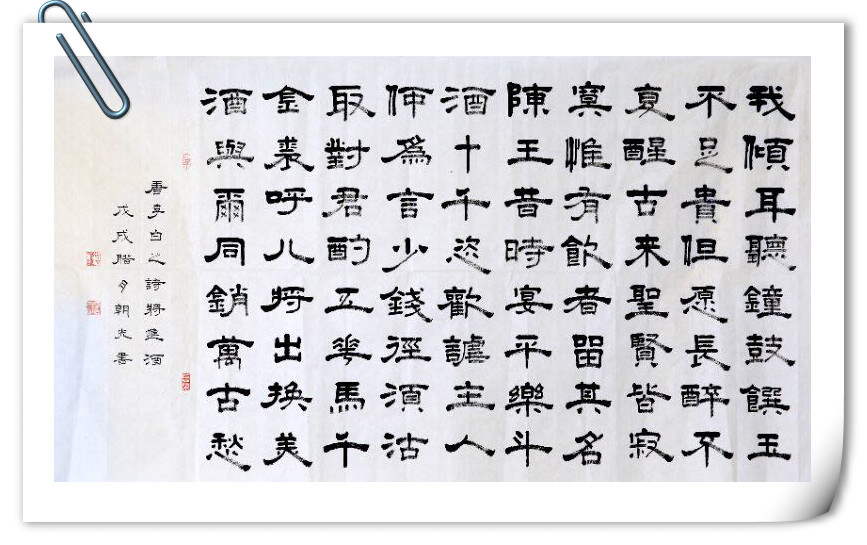 我傾耳聽鐘鼓饌玉
不足貴但愿長醉不
复醒古来聖賢皆寂
寞惟有飲者留其名
陳王昔時宴平樂斗
酒十千恣歡謔主人
何爲言少錢徑須沽
取對君酌五花馬千
金裘呼儿将出换美
酒與爾同銷萬古愁
唐李白之詩將進酒
戊戌腊月朝光書